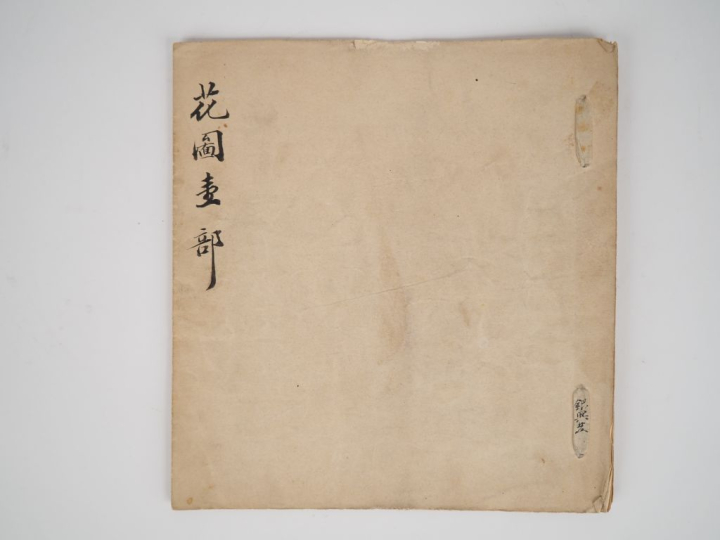 花圖壹部